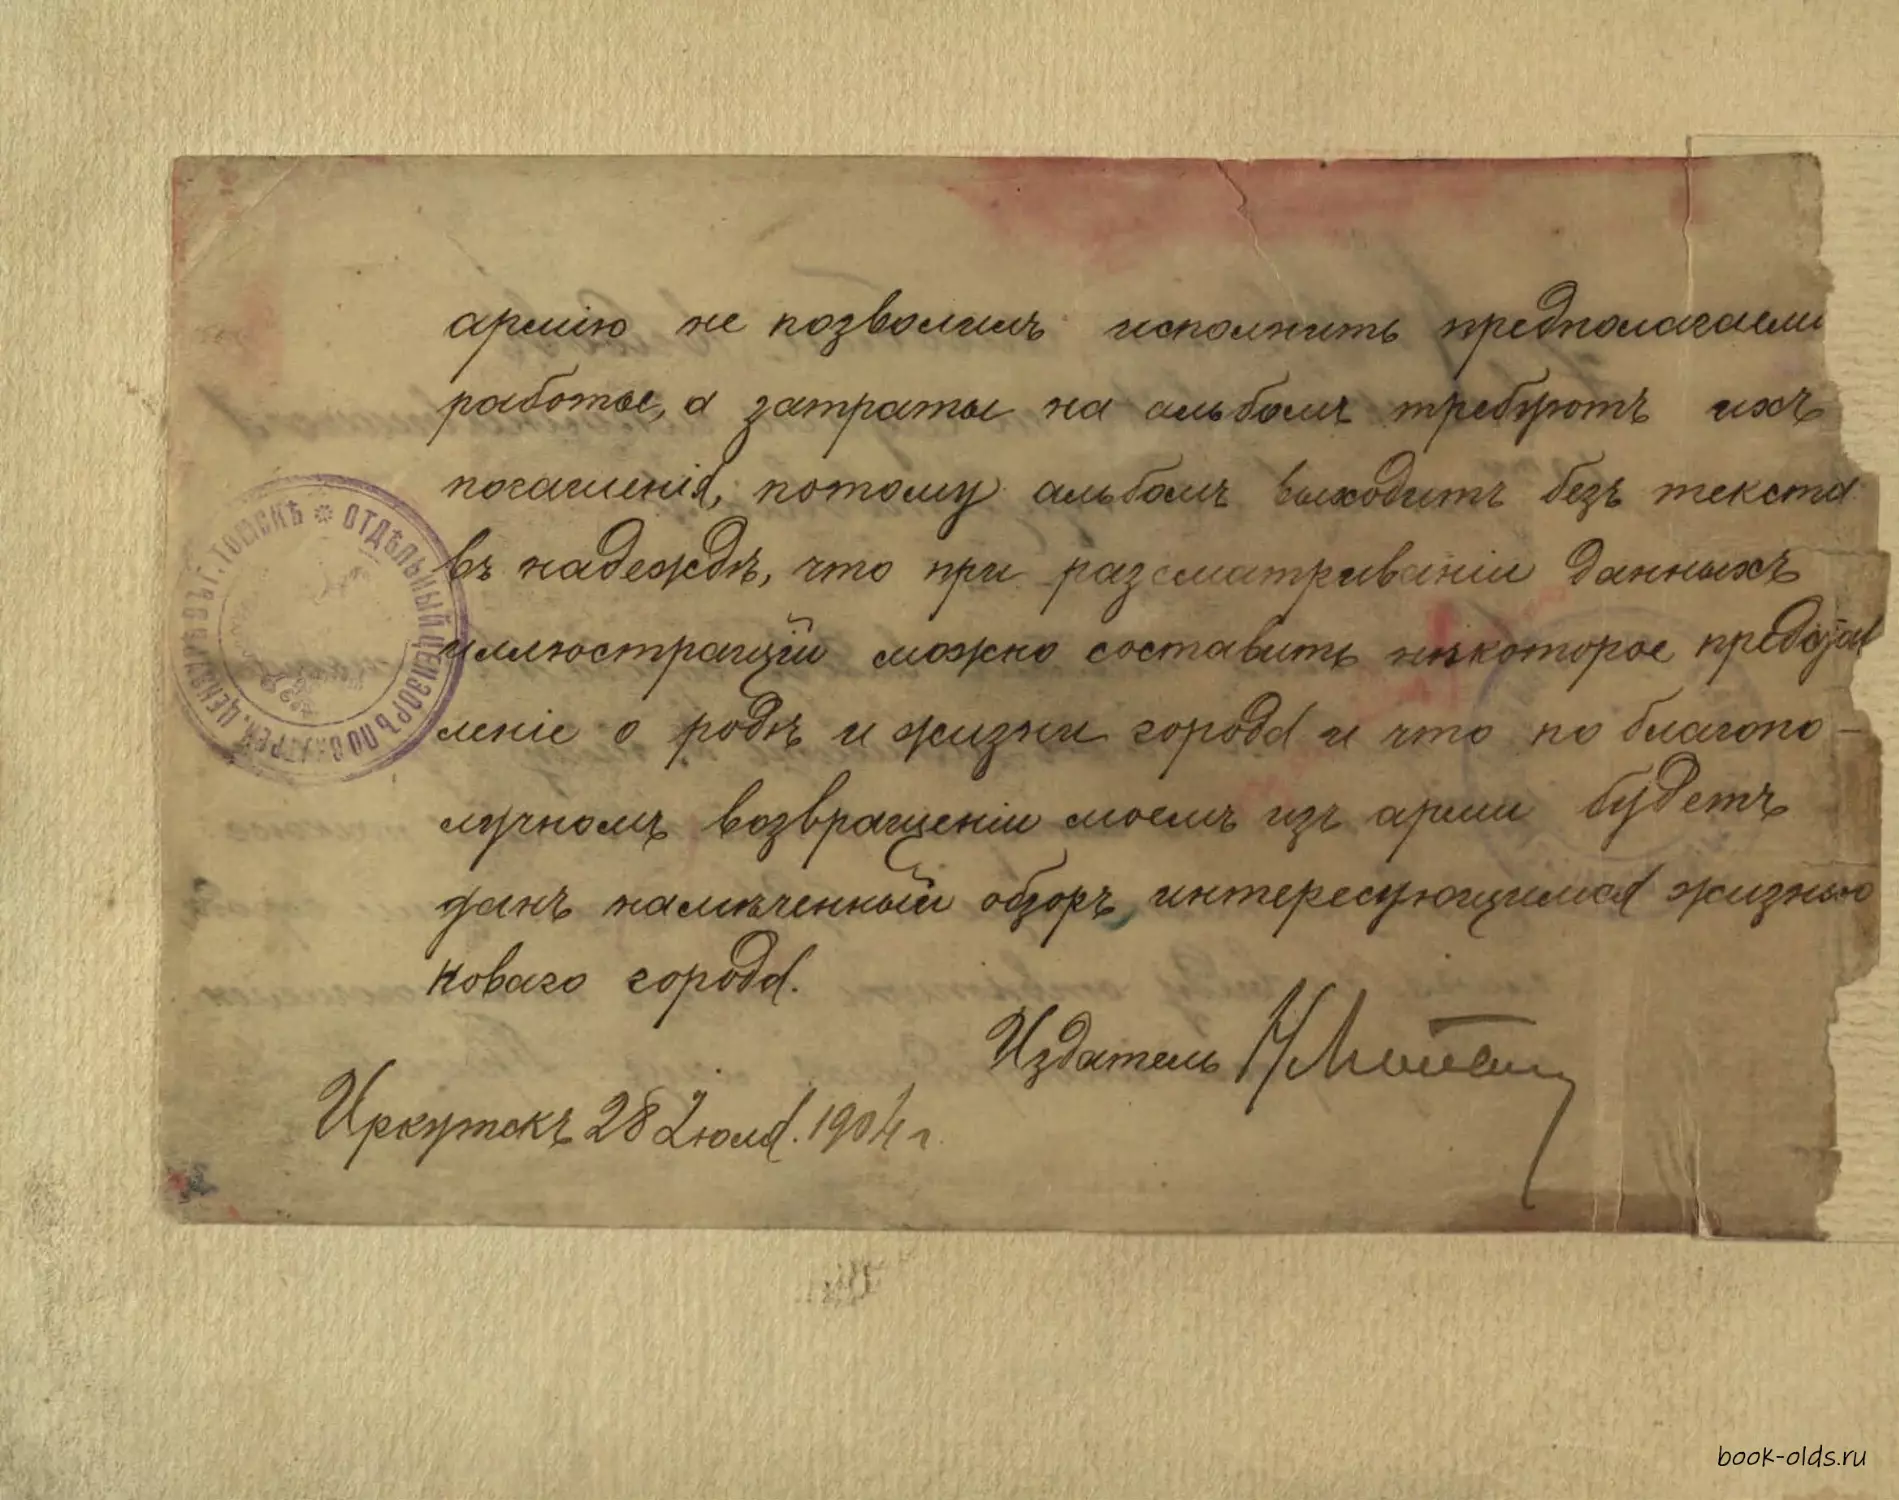 армію не позволилъ исполнить предполагаемы
работы, а затраты на альбомъ требуютъ ихъ
погашенія, потому альбомъ выходитъ безъ текста
въ надеждѣ, что при разсматриваніи данныхъ
иллюстрацій можно составить нѣкоторое представ
леніе о родѣ и жизни города и что по благопо-
лучномъ возвращеніи моемъ изъ арміи будетъ
данъ намѣченный обзоръ интересующимся жизнью
новаго города.
Издатель
Иркутскъ 28 Іюля. 1904 г.
ОТДѢЛЬНЫЙ ЦЕНЗОРЪ ПО ВНУТРЕН. ЦЕНЗУРѢ ВЪ Г. ТОМСКѢ
book-olds.ru